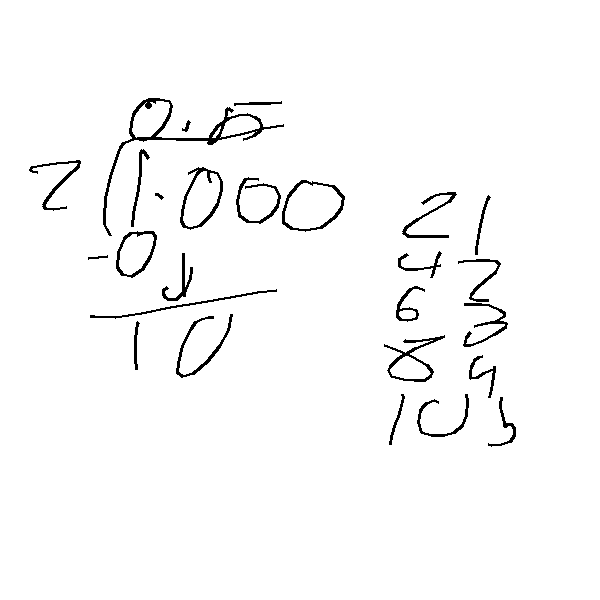 0.5
2 1.000
-0
10
2 1
4 2
6 3
8 4
10 5